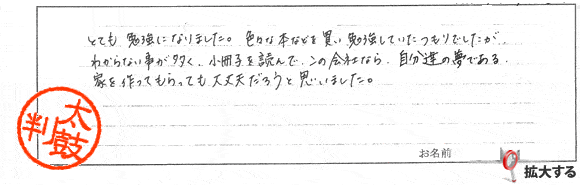 とても勉強になりました。色々な本などを買い勉強していたつもりでしたが、
わからない事が多く、小冊子を読んで、この会社なら、自分達の夢である、
家を作ってもらっても大丈夫だろうと思いました。
太鼓判
お名前
拡大する